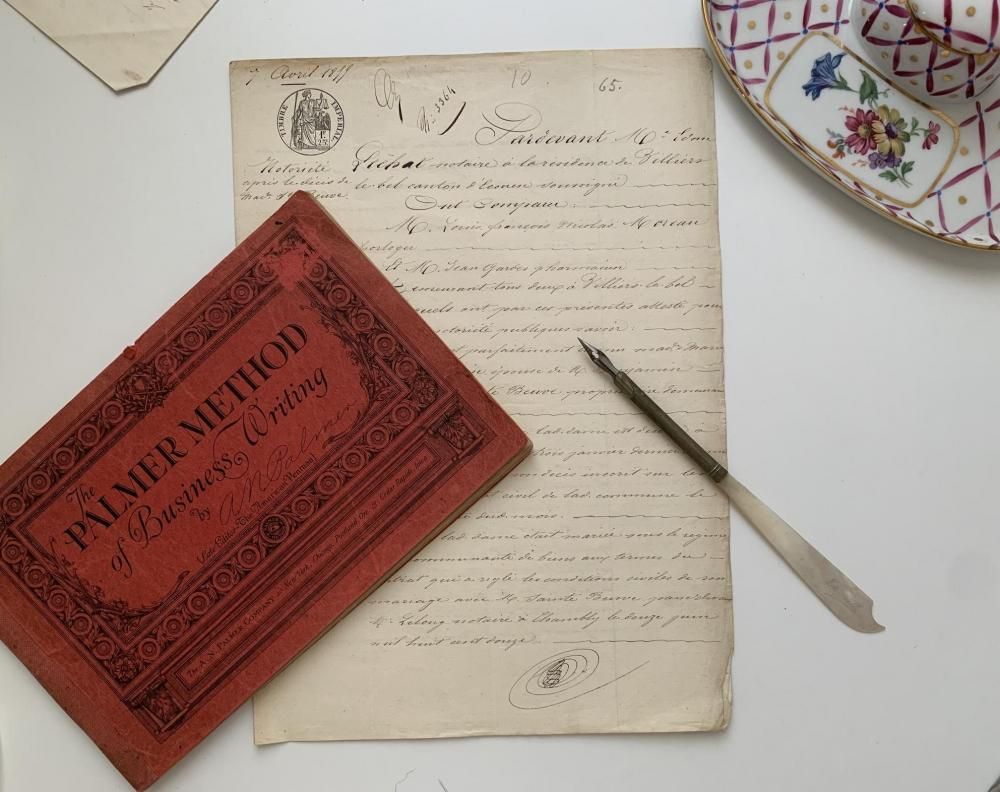 7 Avril 18
10
65.
No 3364
TIMBRE IMPERIAL
Pardevant Me Edme
Notoriété
Léchat notaire à la résidence de Villiers
après le décès de
le bel canton d'Ecouen soussigné
Mad. Ste Beuve
Ont Comparu:
M. Louis françois Nicolas Moreau
horloger
Et M. Jean Gardes pharmacien
demeurant tous deux à Villiers le bel
quels ont par ces présentes attesté, pour
notoriété publique savoir:
parfaitement mad. Marie
épouse de M.
Beuve propriétaire demeurant
lad. dame est décédée
trois janvier dernier
décès inscrit sur les
civil de lad. commune le
dud. mois.
lad. dame était mariée sous le régime
communauté de biens aux termes du
contrat qui a réglé les conditions civiles de son
mariage avec M. Sainte Beuve passé devant
Me Lelong notaire à Chambly le douze juin
mil huit cent douze
The
PALMER METHOD
of Business Writing
by A. N. Palmer
(Late Editor The American Penman)
The A. N. Palmer Company New York, Chicago, Portland Ore. Cedar Rapids, Iowa